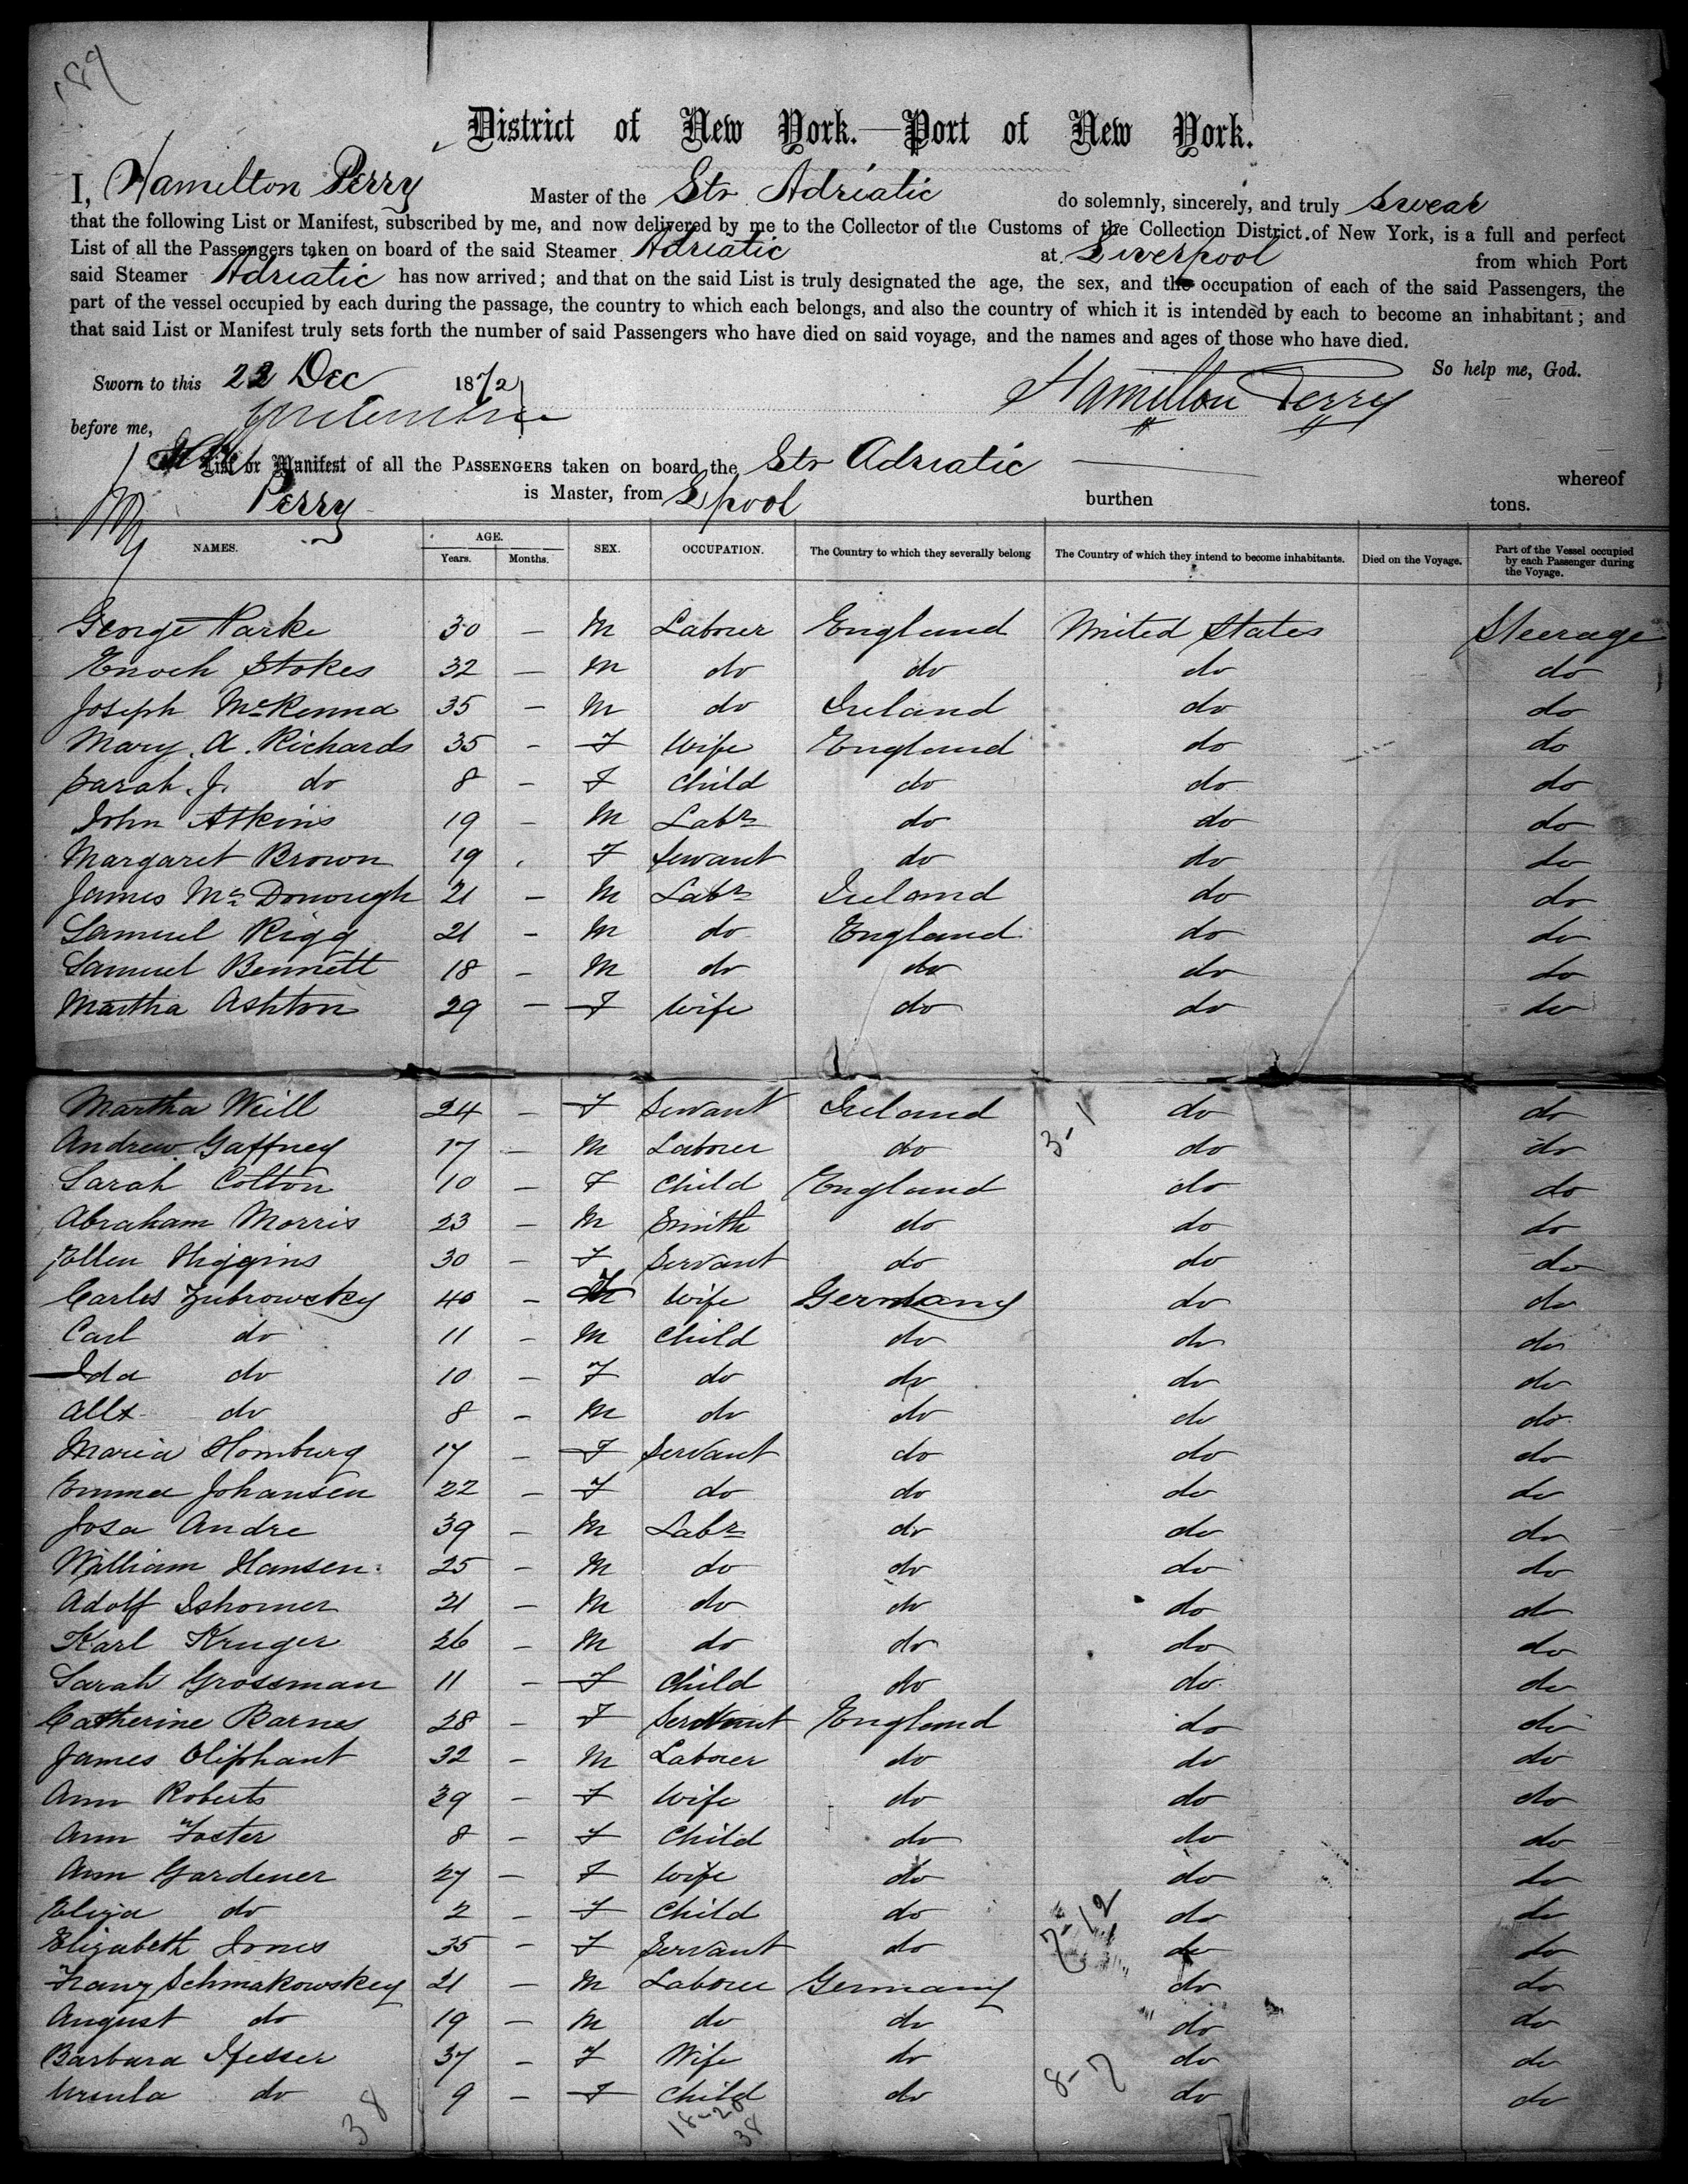 189
District of New York.—Port of New York.
I, Hamilton Perry Master of the Str Adriatic do solemnly, sincerely, and truly swear
that the following List or Manifest, subscribed by me, and now delivered by me to the Collector of the Customs of the Collection District of New York, is a full and perfect
List of all the Passengers taken on board of the said Steamer Adriatic at Liverpool from which Port
said Steamer Adriatic has now arrived; and that on the said List is truly designated the age, the sex, and the occupation of each of the said Passengers, the
part of the vessel occupied by each during the passage, the country to which each belongs, and also the country of which it is intended by each to become an inhabitant; and
that said List or Manifest truly sets forth the number of said Passengers who have died on said voyage, and the names and ages of those who have died.
So help me, God.
Sworn to this 22 Dec 1872
Hamilton Perry
before me,
List or Manifest of all the PASSENGERS taken on board the Str Adriatic whereof
Perry is Master, from Lpool burthen tons.
NAMES. AGE. Years. Months. SEX. OCCUPATION. The Country to which they severally belong The Country of which they intend to become inhabitants. Died on the Voyage. Part of the Vessel occupied by each Passenger during the Voyage.
George Parke 30 — M Labourer England United States Steerage
Enoch Stokes 32 — M do do do do
Joseph McKenna 35 — M do Ireland do do
Mary A. Richards 35 — F Wife England do do
Sarah J. do 8 — F Child do do do
John Atkins 19 — M Labr do do do
Margaret Brown 19 F Servant do do do
James McDonough 21 — M Labr Ireland do do
Samuel Rigg 21 — M do England do do
Samuel Bennett 18 — M do do do do
Martha Ashton 29 — F Wife do do do
Martha Weill 24 — F Servant Ireland 3-1 do do
Andrew Gaffney 17 — M Labourer do do do
Sarah Cotton 10 — F Child England do do
Abraham Morris 23 — M Smith do do do
Ellen Higgins 30 — F Servant do do do
Carles Zubrowcky 40 — F Wife Germany do do
Carl do 11 — M Child do do do
Ida do 10 — F do do do do
Allx do 8 — M do do do do
Maria Homburg 17 — F Servant do do do
Emma Johansen 22 — F do do do do
Josa Andre 39 — M Labr do do do
William Hansen 25 — M do do do do
Adolf Ishomer 21 — M do do do do
Karl Kruger 26 — M do do do do
Sarah Grossman 11 — F Child do do do
Catherine Barnes 28 — F Servant England do do
James Oliphant 32 — M Labourer do do do
Ann Roberts 39 — F Wife do do do
Ann Foster 8 — F Child do do do
Ann Gardener 27 — F Wife do do do
Eliza do 2 — F Child do do do
Elizabeth Jones 35 — F Servant do 7-12 do do
Franz Schmakowskey 21 — M Labourer Germany do do
August do 19 — M do do do do
Barbara Pfesser 37 — F Wife do do do
Ursula do 9 — F Child do 8-7 do do
38 18-20
38